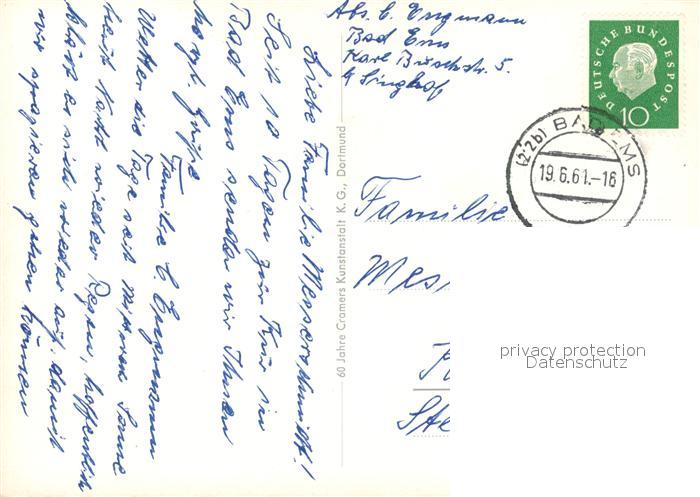 Abs. C. Engmann
Bad Ems
Karl Buschstr. 5.
b Singhof
DEUTSCHE BUNDESPOST
10
(22b) BAD EMS
19.6.61.-16
Familie
Mes
privacy protection
Datenschutz
Ste
60 Jahre Cramers Kunstanstalt K. G., Dortmund
Liebe Familie Messerschmitt!
Seit 10 Tagen zur Kur in
Bad Ems senden wir Ihnen
herzl. Grüße
Familie C. Engmann
Wetter die Tage seit mittags Sonne
heut Nacht wieder Regen, hoffentlich
klärt es sich wieder auf, damit
wir spazieren gehen können